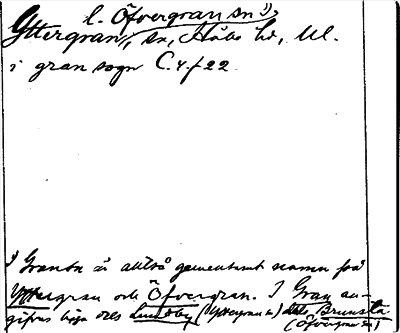 l. Öfvergran sn 1).
Yttergran, sn, Håbo hd, Ul.
i gran sogn C.4.f 22.
1 Granby är alltså gemensamt namn för
Yttergran och Öfvergran. I Gran an-
gifves ligga dels Lundby (Yttergran sn) dels Brunsta
(Öfvergran sn)